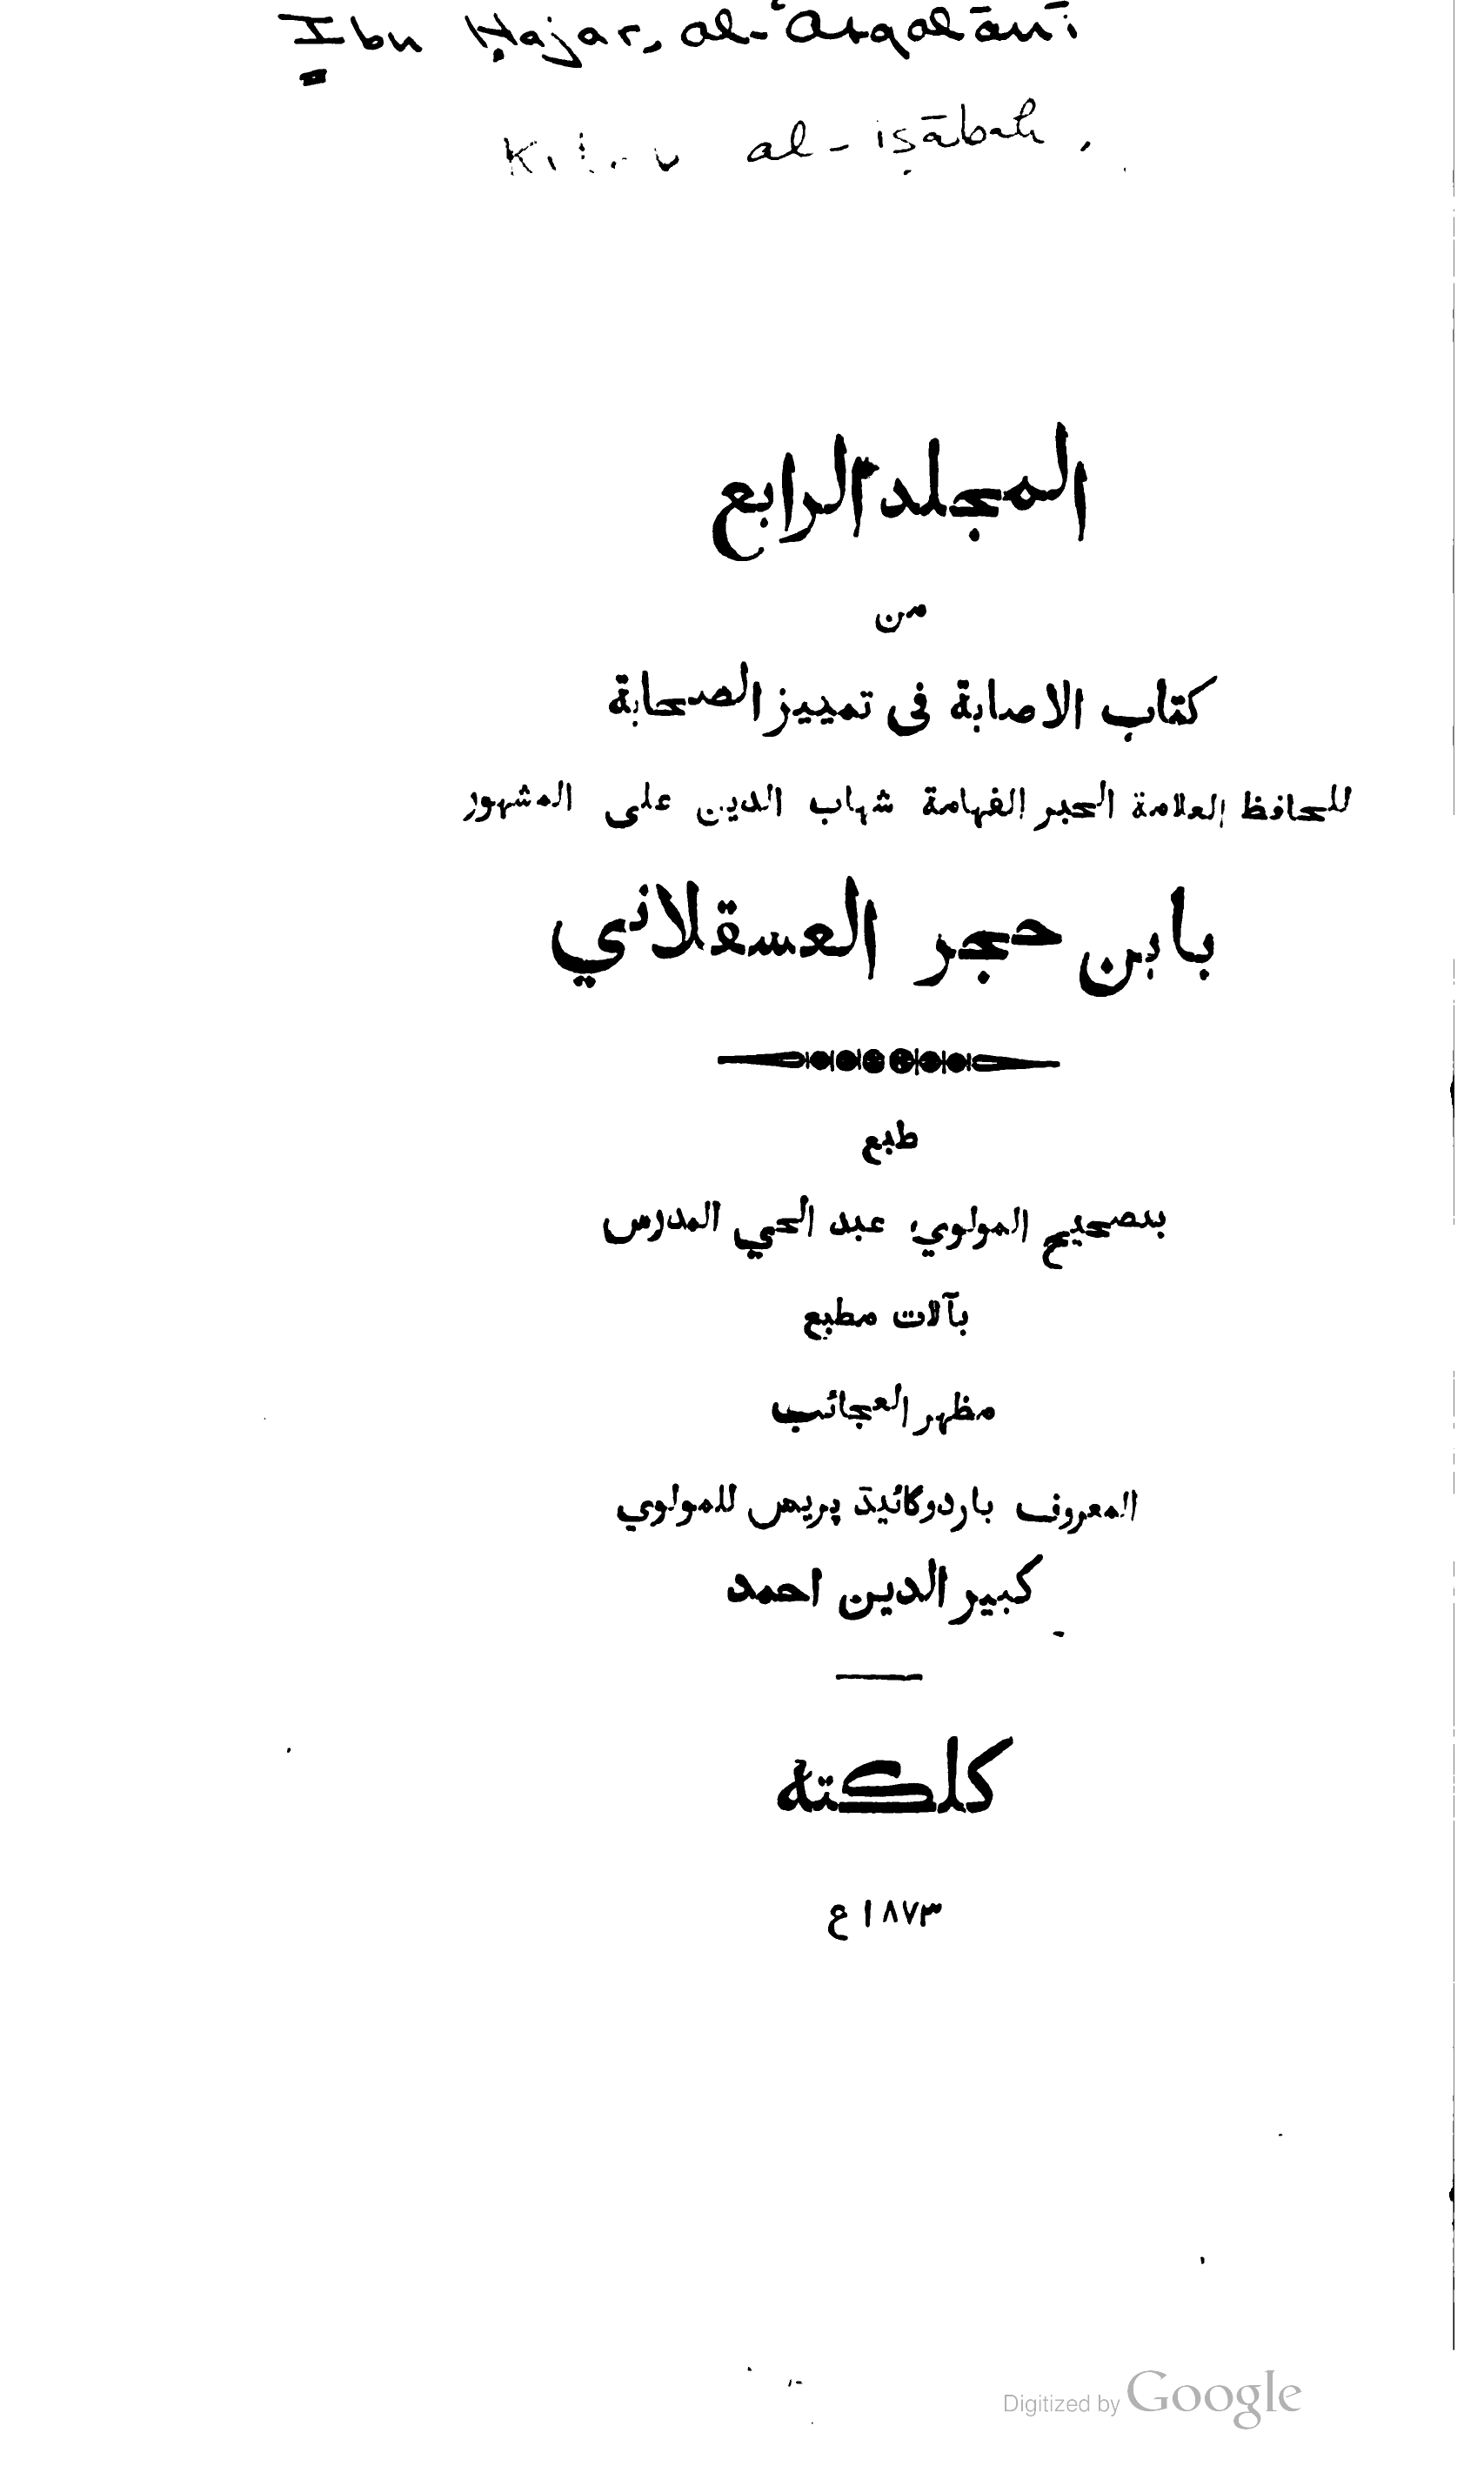 Ibn Ḥajar, al-ʿAsqalānī
Kitāb al-iṣābah,
المجلد الرابع
من
كتاب الاصابة فى تمييز الصحابة
للحافظ العلامة الحبر الفهامة شهاب الدين على المشهور
بابن حجر العسقلاني
طبع
بتصحيح المولوي عبد الحي المدرس
بآلات مطبع
مظهر العجائب
المعروف باردوكائيد پريس للمولوي
كبير الدين احمد
كلكته
١٨٧٣ ع
Digitized by Google